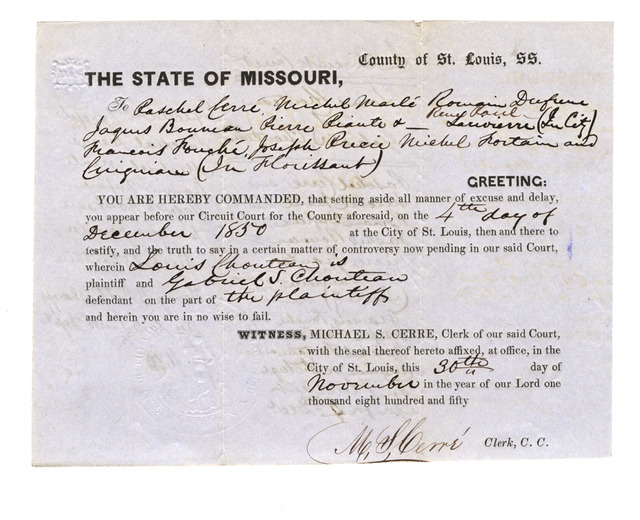 County of St. Louis, SS.
THE STATE OF MISSOURI,
To Paschel Cerré, Michel Marlé Romain Dufrene
Jaques Bouneau Pierre Piante & — (In City)
Francois Fouché, Joseph Michel Fortain and
(In Florissant)
GREETING:
YOU ARE HEREBY COMMANDED, that setting aside all manner of excuse and delay,
you appear before our Circuit Court for the County aforesaid, on the 4th day of
December 1850 at the City of St. Louis, then and there to
testify, and the truth to say in a certain matter of controversy now pending in our said Court,
wherein Louis Chouteau is
plaintiff and Gabriel S. Chouteau
defendant on the part of the plaintiff
and herein you are in no wise to fail.
WITNESS, MICHAEL S. CERRE, Clerk of our said Court,
with the seal thereof hereto affixed, at office, in the
City of St. Louis, this 30th day of
November in the year of our Lord one
thousand eight hundred and fifty
M. S. Cerré Clerk, C. C.